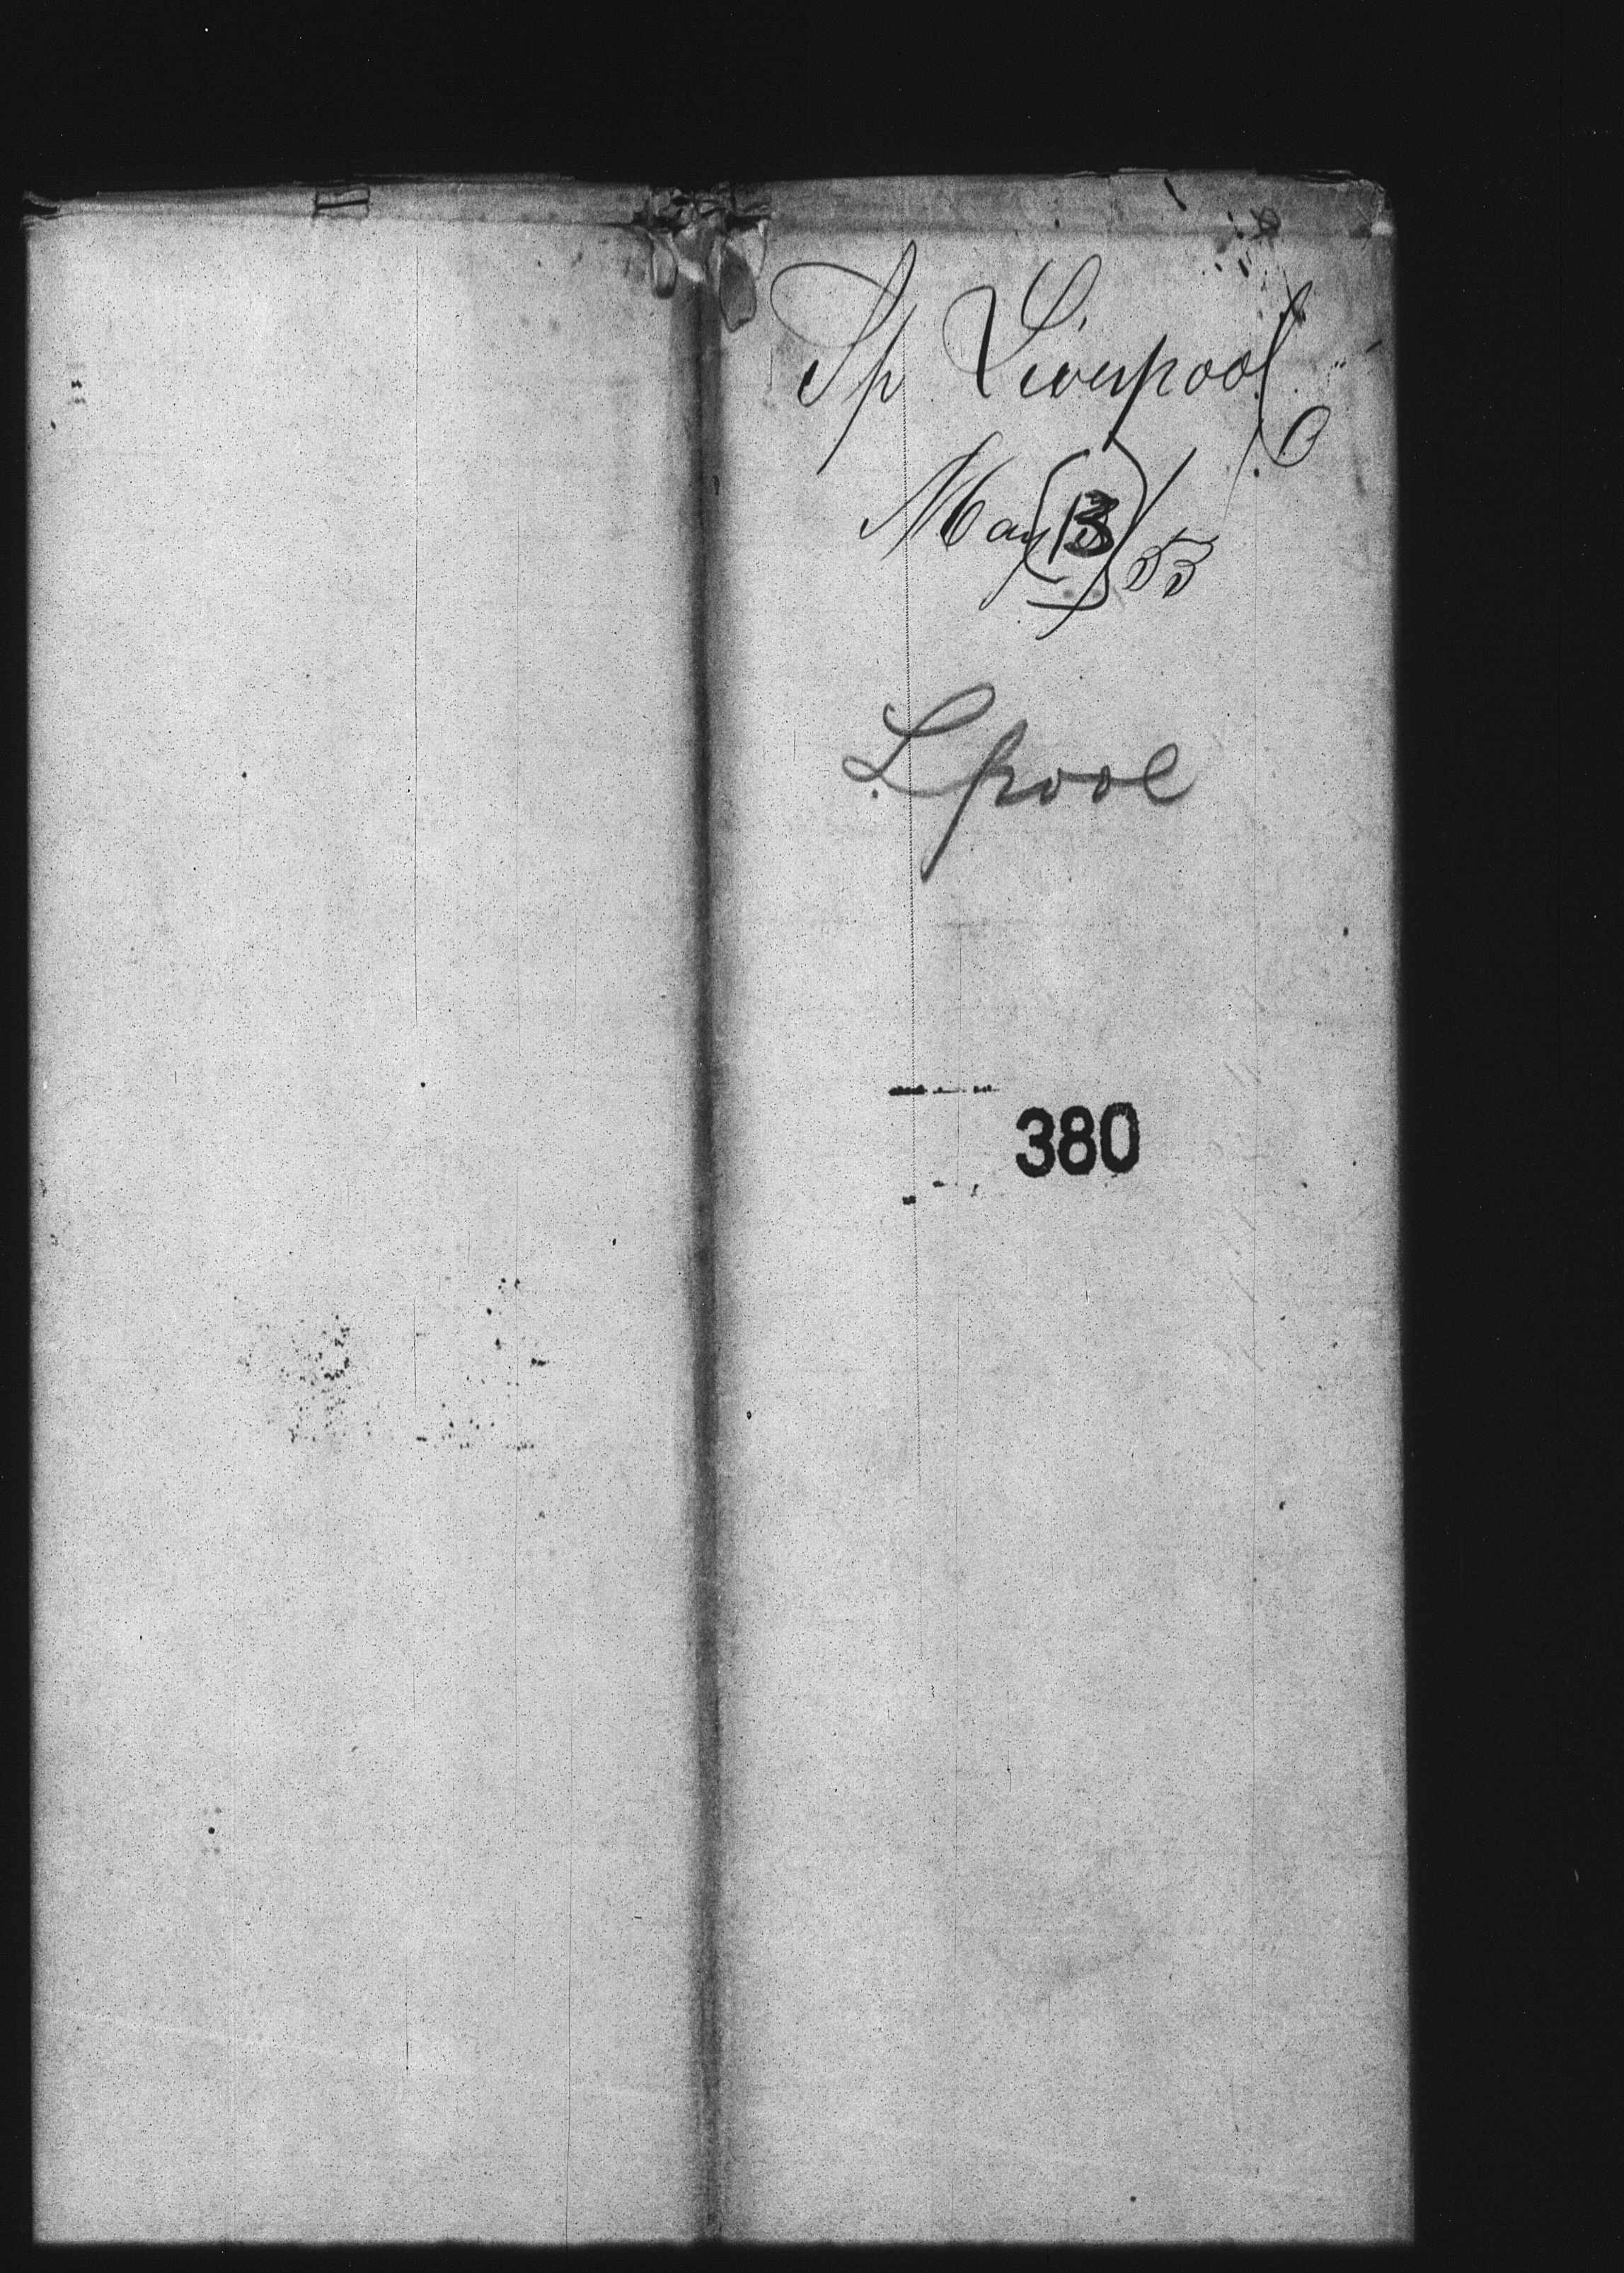 Sp Liverpool
May 13/53
Lpool
380